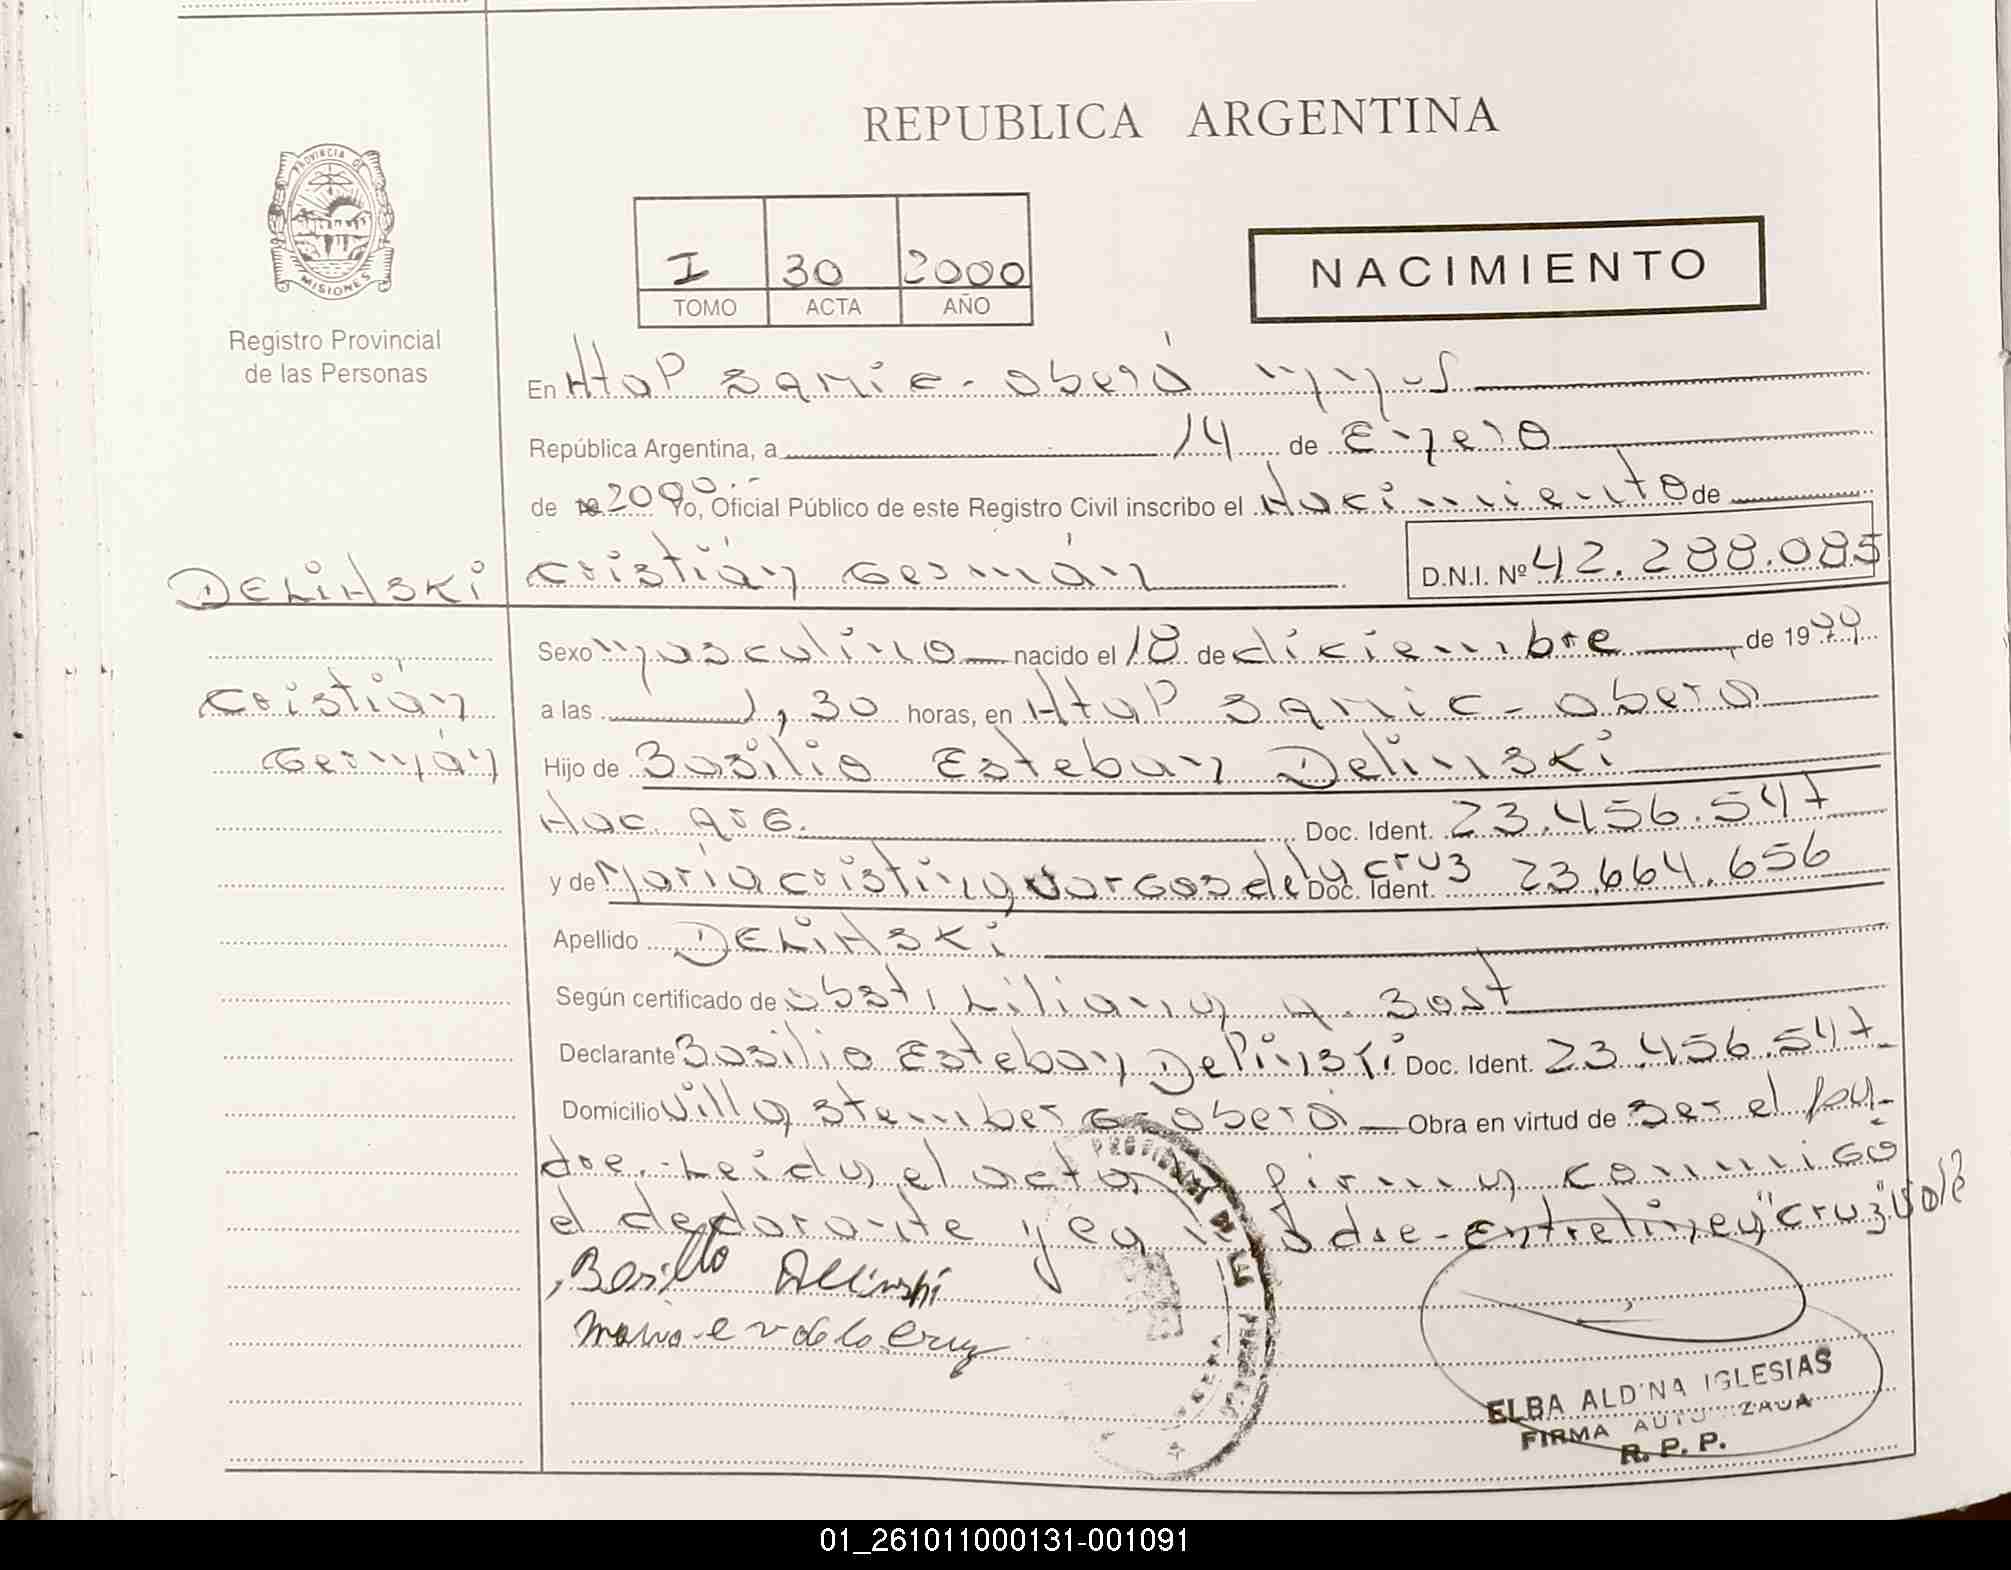 REPUBLICA ARGENTINA
PROVINCIA DE
MISIONES
Registro Provincial
de las Personas
I 30 2000
TOMO ACTA AÑO
NACIMIENTO
En Htal Samic - Oberá Mnes
República Argentina, a 14 de Enero
de 2000.- Yo, Oficial Público de este Registro Civil inscribo el Nacimiento de
DELINSKI Cristián Germán D.N.I. Nº 42.288.085
Cristián
Germán
Sexo Masculino nacido el 18 de diciembre de 1999
a las 1,30 horas, en Htal Samic - Oberá
Hijo de Basilio Esteban Delinski
Nac. Arg. Doc. Ident. 23.456.547
y de María Cristina Vargas de la Cruz Doc. Ident. 23.664.656
Apellido DELINSKI
Según certificado de Obst. Liliana A. Bost
Declarante Basilio Esteban Delinski Doc. Ident. 23.456.547
Domicilio Villa Stemberg-Oberá Obra en virtud de ser el pa-
dre.- Leida el acta firma conmigo
el declarante y la madre - Entrelinea "Cruz" Vale
Basilio Delinski
Maria C V de la Cruz
PROVINCIA DE
ELBA ALDINA IGLESIAS
FIRMA AUTORIZADA
R. P. P.
01_261011000131-001091